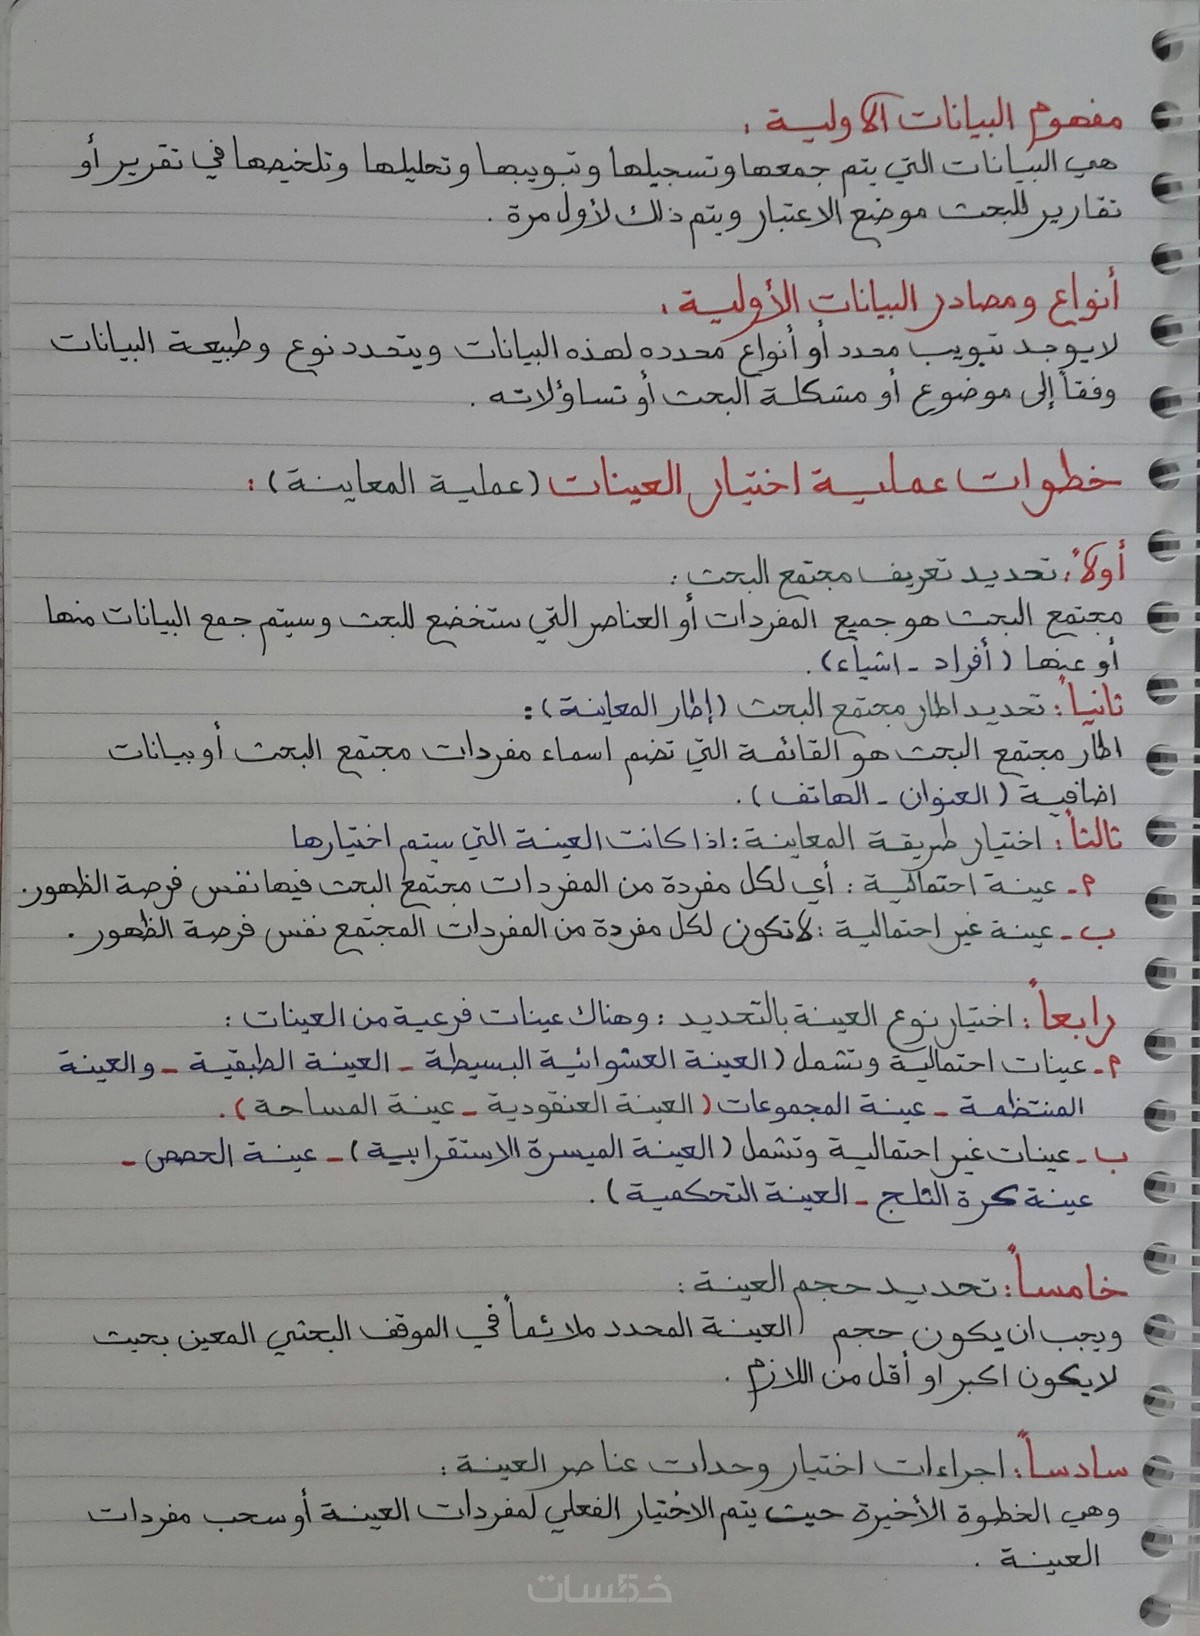 مفهوم البيانات الاولية :
هي البيانات التي يتم جمعها وتسجيلها وتبويبها وتحليلها وتلخيصها في تقرير أو
تقارير للبحث موضع الاعتبار ويتم ذلك لأول مرة .
أنواع ومصادر البيانات الأولية :
لا يوجد تبويب محدد أو أنواع محدده لهذه البيانات ويتحدد نوع وطبيعة البيانات
وفقاً إلى موضوع أو مشكلة البحث أو تساؤلاته .
خطوات عملية اختيار العينات (عملية المعاينة) :
أولاً : تحديد تعريف مجتمع البحث :
مجتمع البحث هو جميع المفردات أو العناصر التي ستخضع للبحث وسيتم جمع البيانات منها
أو عنها (أفراد - اشياء) .
ثانياً : تحديد اطار مجتمع البحث (إطار المعاينة) :
اطار مجتمع البحث هو القائمة التي تضم اسماء مفردات مجتمع البحث أو بيانات
اضافية (العنوان - الهاتف) .
ثالثاً : اختيار طريقة المعاينة : اذا كانت العينة التي سيتم اختيارها
م - عينة احتمالية : أي لكل مفردة من المفردات مجتمع البحث فيها نفس فرصة الظهور .
ب - عينة غير احتمالية : لا تكون لكل مفردة من المفردات المجتمع نفس فرصة الظهور .
رابعاً : اختيار نوع العينة بالتحديد : وهناك عينات فرعية من العينات :
م - عينات احتمالية وتشمل (العينة العشوائية البسيطة - العينة الطبقية - والعينة
المنتظمة - عينة المجموعات (العينة العنقودية - عينة المساحة) .
ب - عينات غير احتمالية وتشمل (العينة الميسرة الاستقرابية) - عينة الحصص -
عينة كرة الثلج - العينة التحكمية) .
خامساً : تحديد حجم العينة :
ويجب ان يكون حجم العينة المحدد ملائماً في الموقف البحثي المعين بحيث
لا يكون اكبر او أقل من اللازم .
سادساً : اجراءات اختيار وحدات عناصر العينة :
وهي الخطوة الأخيرة حيث يتم الاختيار الفعلي لمفردات العينة أو سحب مفردات
العينة .
خمسات